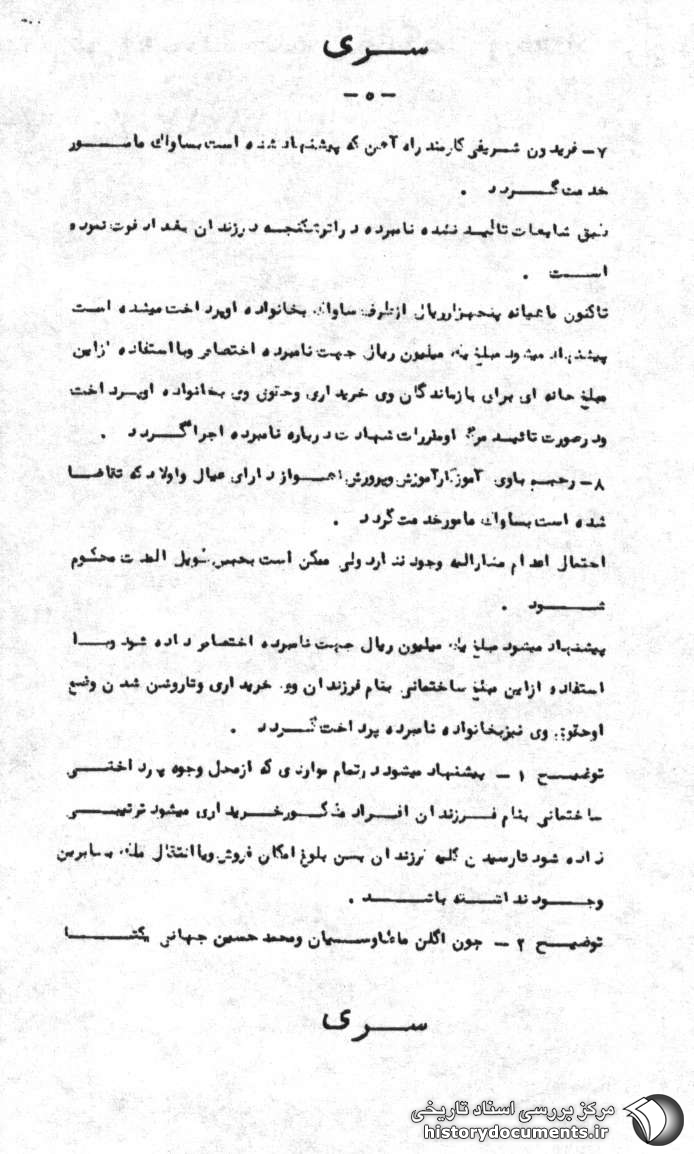 سری
- ۵ -
۷- فریدون شریفی کارمند راه آهن که پیشنهاد شده است بساواک مامور
خدمت گردد .
طبق شایعات تائید نشده نامبرده در اثر شکنجه در زندان بغداد فوت نموده
است .
تاکنون ماهیانه پنجهزار ریال از طرف ساواک بخانواده او پرداخت میشده است
پیشنهاد میشود مبلغ یک میلیون ریال جهت نامبرده اختصاص و با استفاده از این
مبلغ خانه ای برای بازماندگان وی خریداری و حقوق وی بخانواده او پرداخت
و در صورت تائید مرگ او مقررات شهادت درباره نامبرده اجرا گردد .
۸- رحیم باوی آموزگار آموزش و پرورش اهواز دارای عیال و اولاد که تقاضا
شده است بساواک مامور خدمت گردد .
احتمال اعدام مشارالیه وجود ندارد ولی ممکن است بحبس طویل المدت محکوم
شود .
پیشنهاد میشود مبلغ یک میلیون ریال جهت نامبرده اختصاص داده شود و با
استفاده از این مبلغ ساختمانی بنام فرزندان وی خریداری و تا روشن شدن وضع
او حقوق وی نیز بخانواده نامبرده پرداخت گردد .
توضیح ۱ - پیشنهاد میشود در تمام مواردی که از محل وجوه پرداختی
ساختمانی بنام فرزندان افراد مذکور خریداری میشود ترتیبی
داده شود تا رسیدن کلیه فرزندان بسن بلوغ امکان فروش و یا انتقال ملک بسایرین
وجود نداشته باشد .
توضیح ۲ - چون اگلن ماطاوسیان و محمد حسین جهانی یکتا
سری
مرکز بررسی اسناد تاریخی
historydocuments.ir